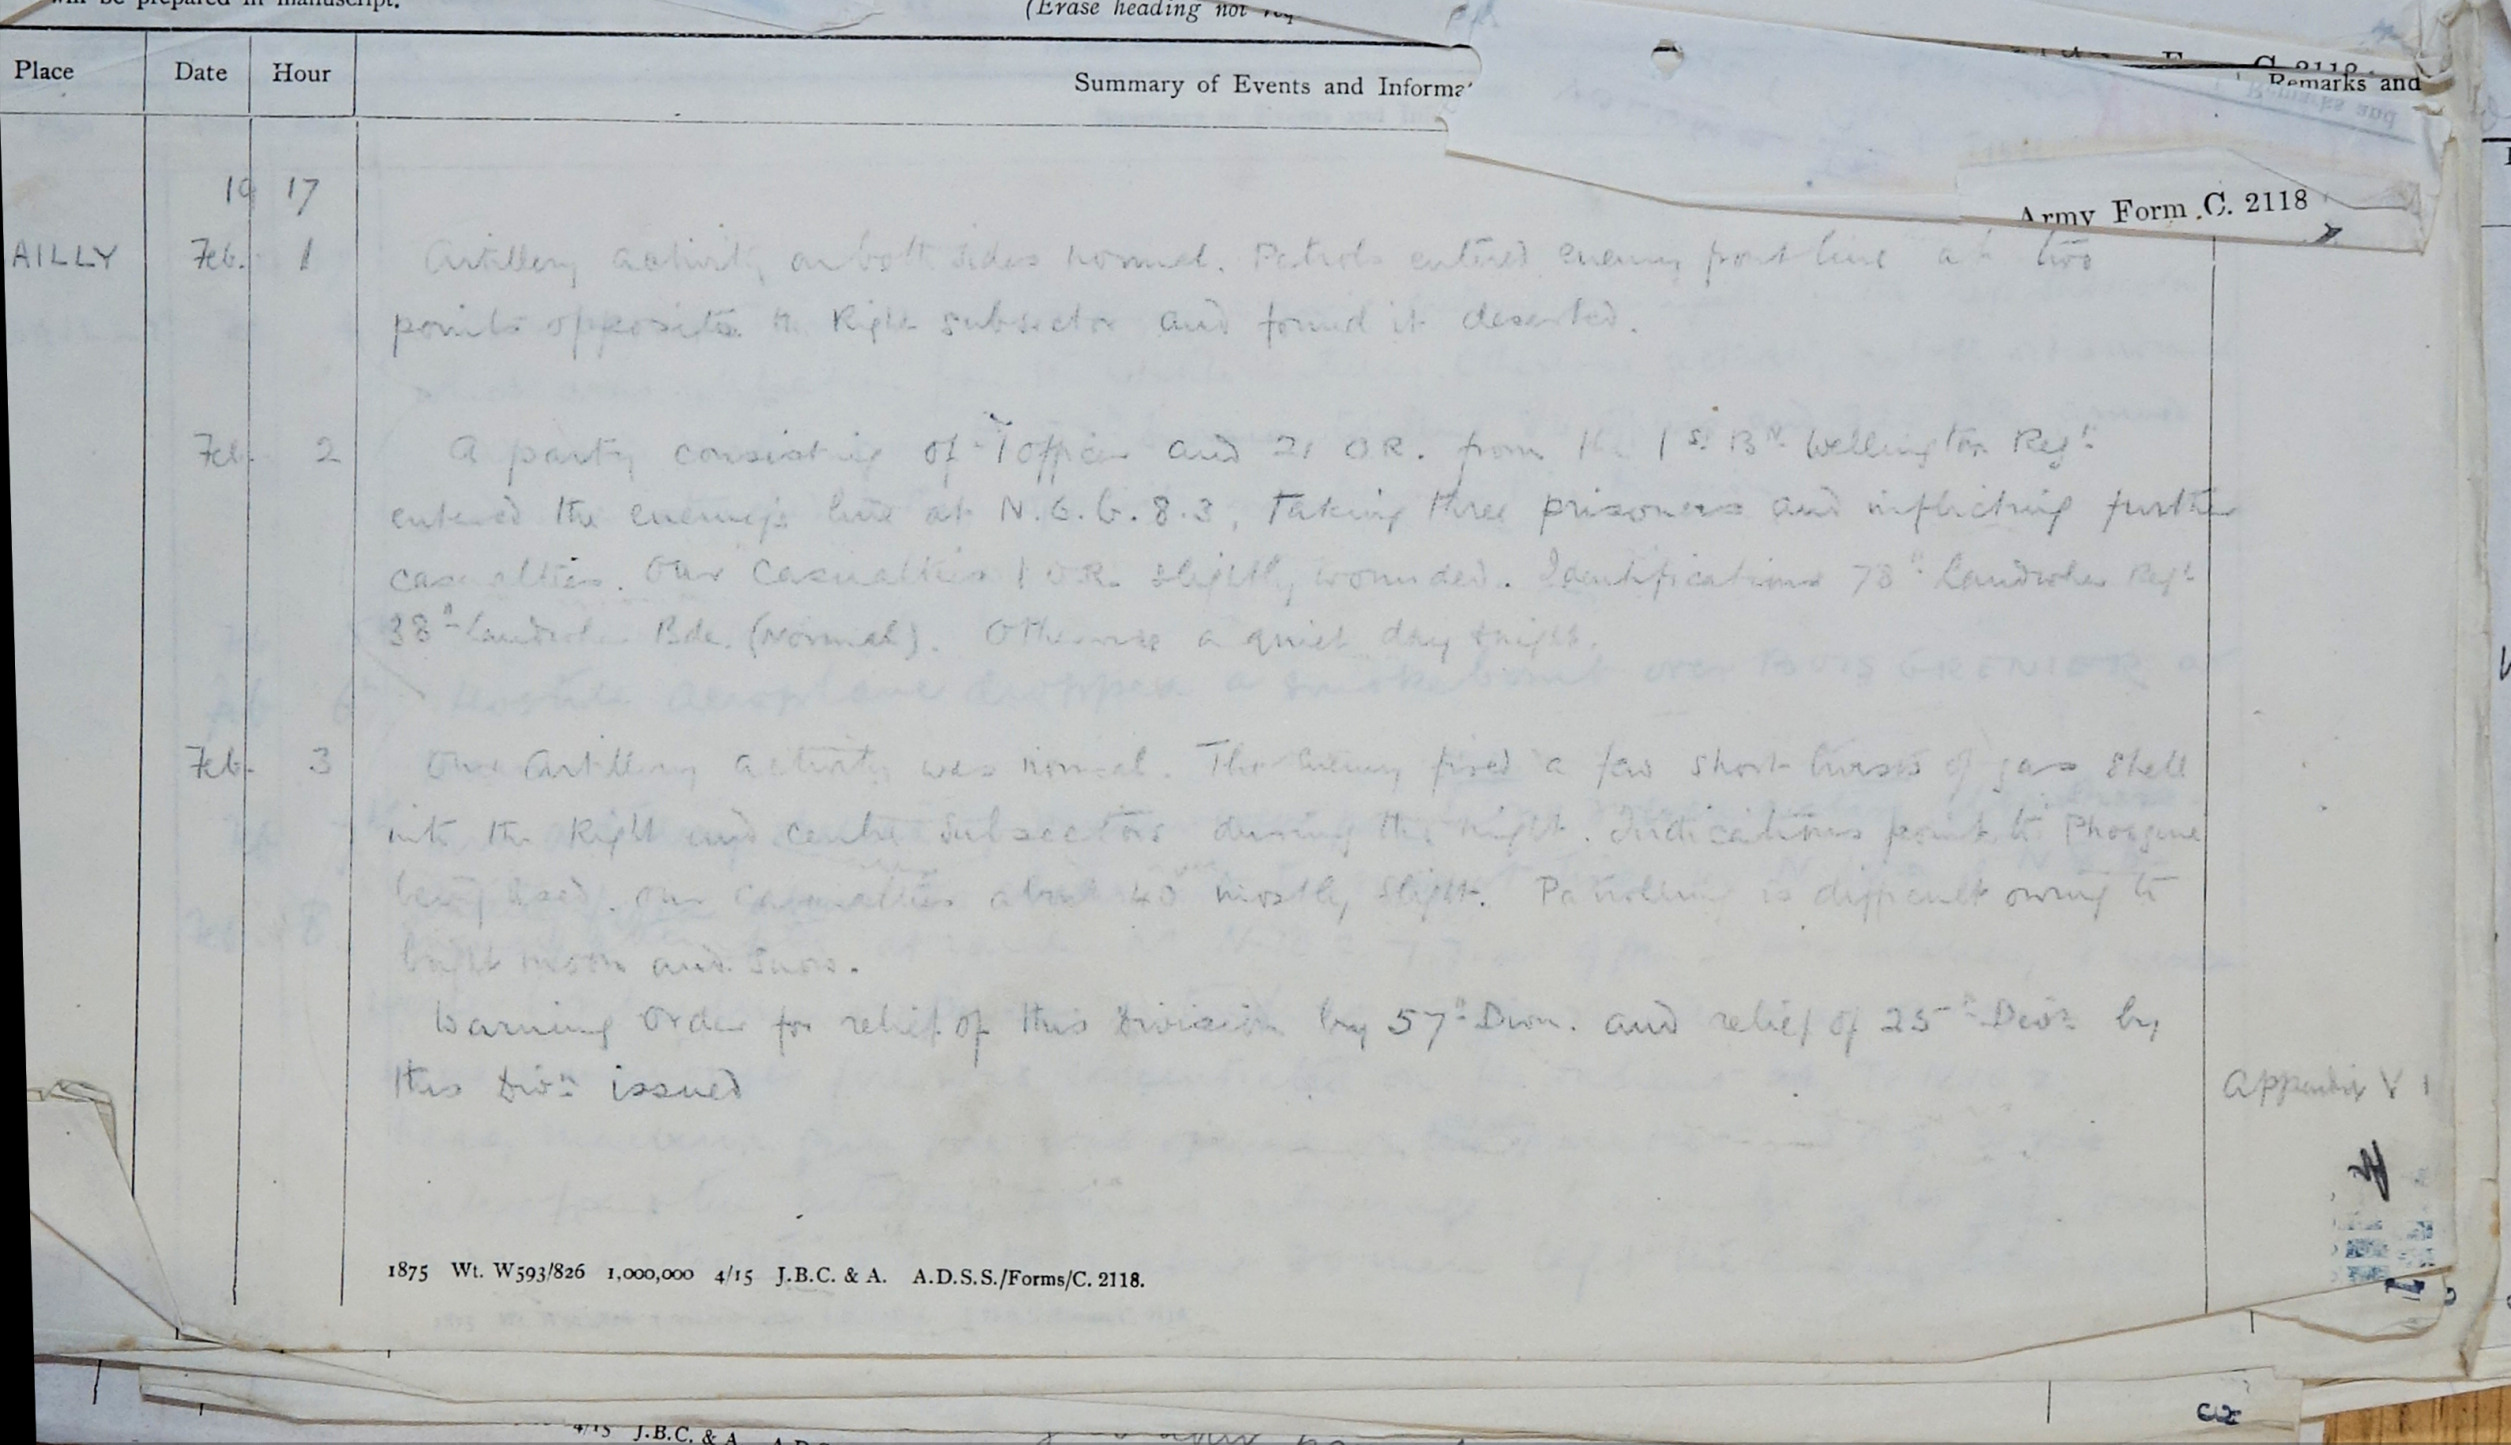 will be prepared in manuscript.
(Erase heading not
Place Date Hour Summary of Events and Informa
Remarks and
Army Form C. 2118
1917
AILLY Feb. 1 Artillery activity on both sides normal. Patrols entered enemy front line at two
points opposite the Right subsector and found it deserted.
Feb. 2 A party consisting of 1 officer and 21 O.R. from the 1st Bn Wellington Regt
entered the enemy's line at N.6.b.8.3, taking three prisoners and inflicting further
casualties. Our casualties 1 O.R. slightly wounded. Identifications 78th Landwehr Regt
38th Landwehr Bde. (Normal). Otherwise a quiet day & night.
Feb. 3 Our Artillery activity was normal. The Enemy fired a few short bursts of gas shell
into the Right and centre subsectors during the night. Indications point to Phosgene
being used. Our casualties about 40 mostly slight. Patrolling is difficult owing to
bright moon and snow.
Warning Order for relief of this Division by 57th Divn. and relief of 25th Divn by
this Divn issued Appendix V 1
1875 Wt. W593/826 1,000,000 4/15 J.B.C. & A. A.D.S.S./Forms/C. 2118.
4/15 J.B.C. & A